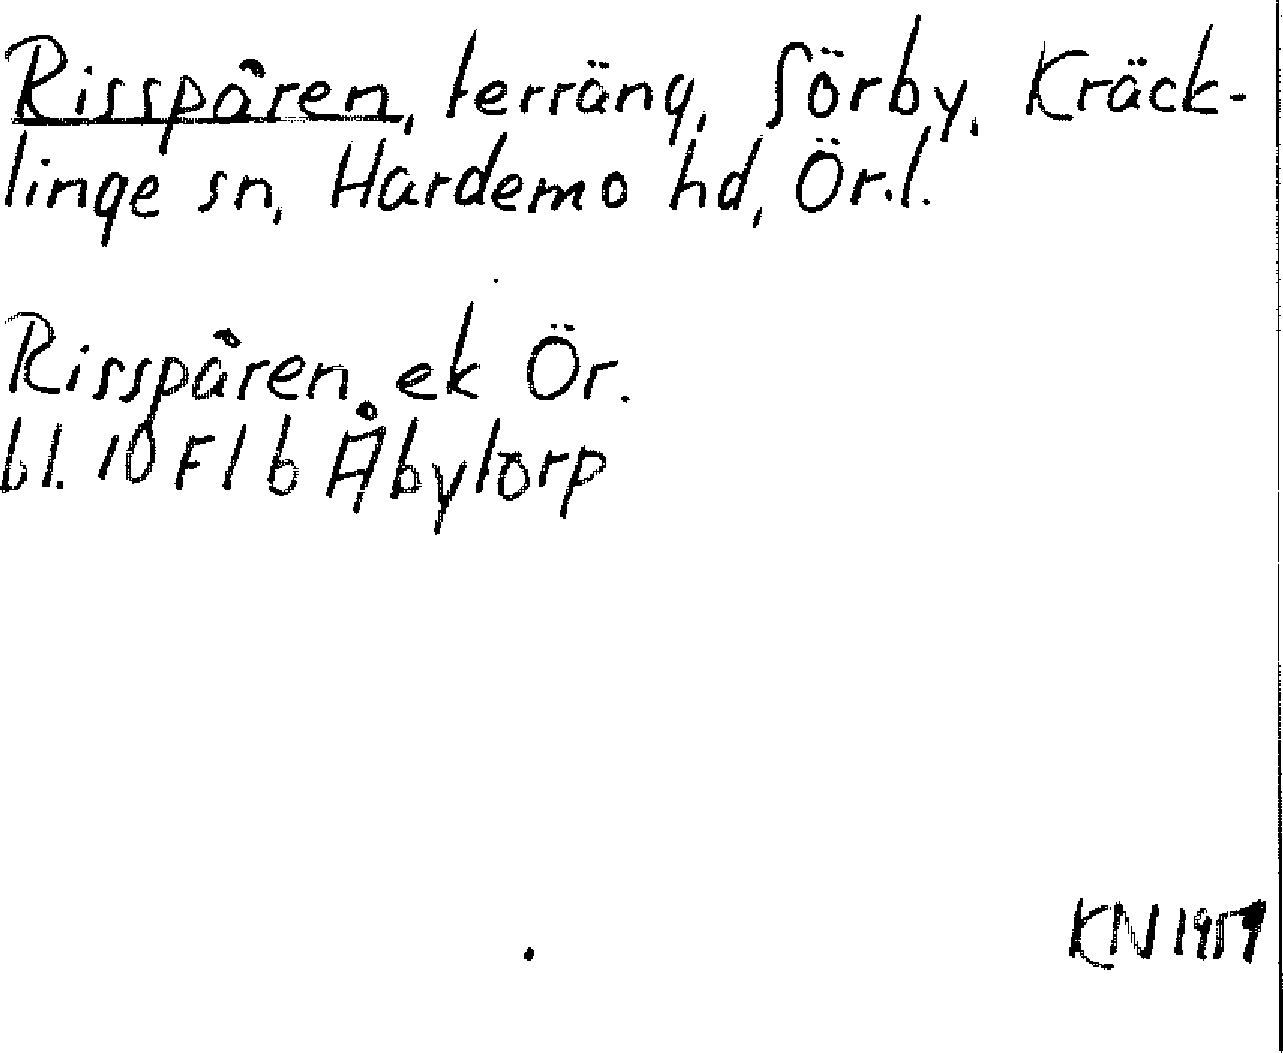 Risspåren, terräng, Sörby, Kräck-
linge sn, Hardemo hd, Ör.l.
Risspåren ek Ör.
bl. 10 F 1 b Åbytorp
KN